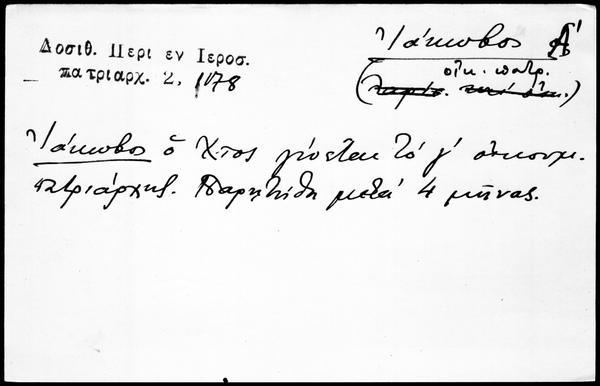 Δοσιθ. Περι εν Ιεροσ.
πατριαρχ. 2, 1178
Ἰάκωβος Α'
οἰκ. πατρ.
Ἰάκωβος ὁ Χ·τος γίνεται τό γ' οἰκουμ.
πατριάρχης. Παρῃτήθη μετά 4 μῆνας.